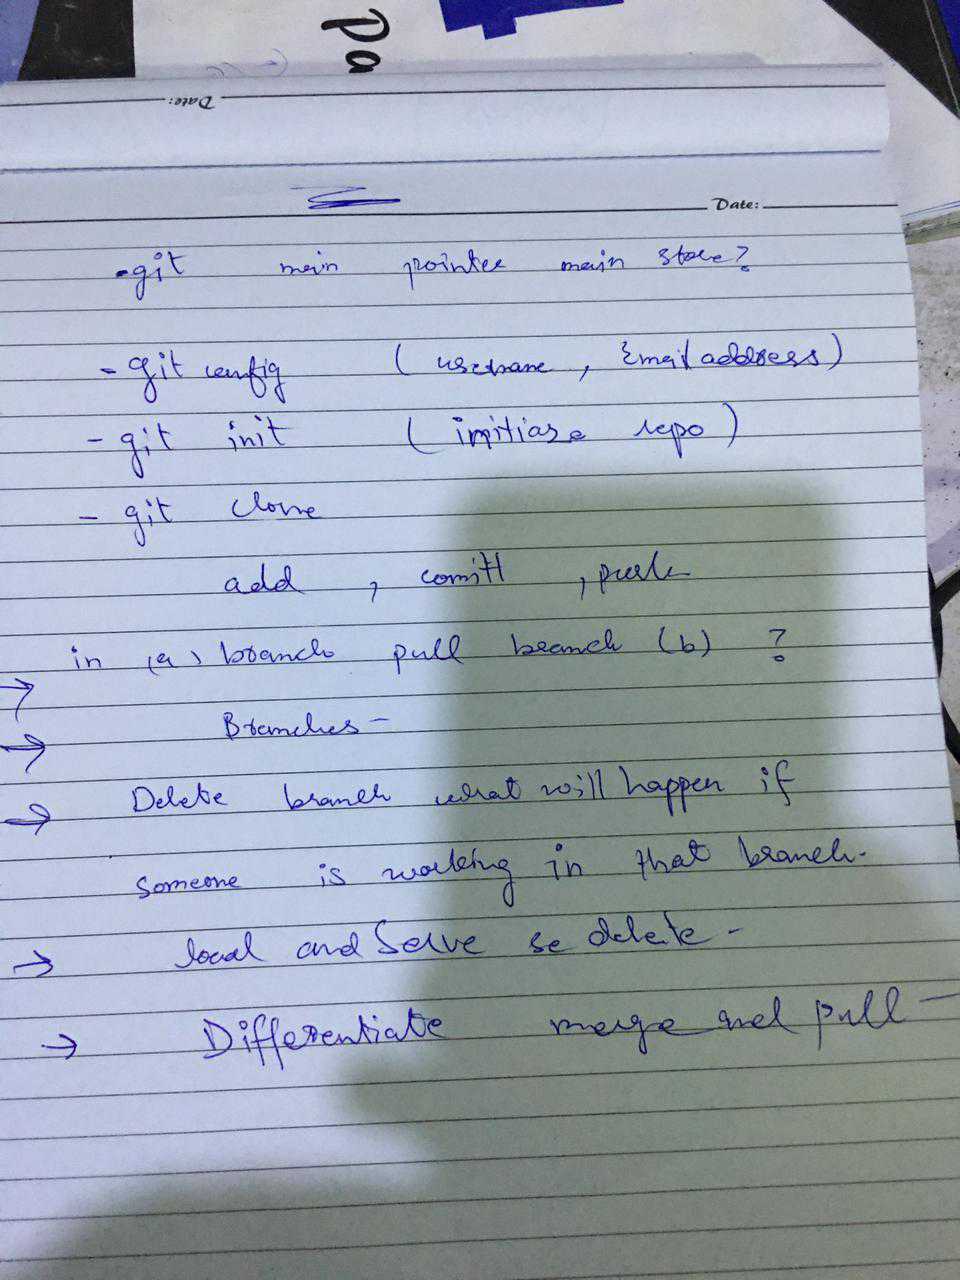 Pa
Date:
Date:
-git main pointer main store?
- git config ( username , Email address)
- git init ( initiase repo )
- git clone
add , comitt , push
in (a) branch pull branch (b) ?
→ Branches -
→ Delete branch what will happen if
someone is working in that branch.
→ local and Serve se delete -
→ Differentiate merge and pull -